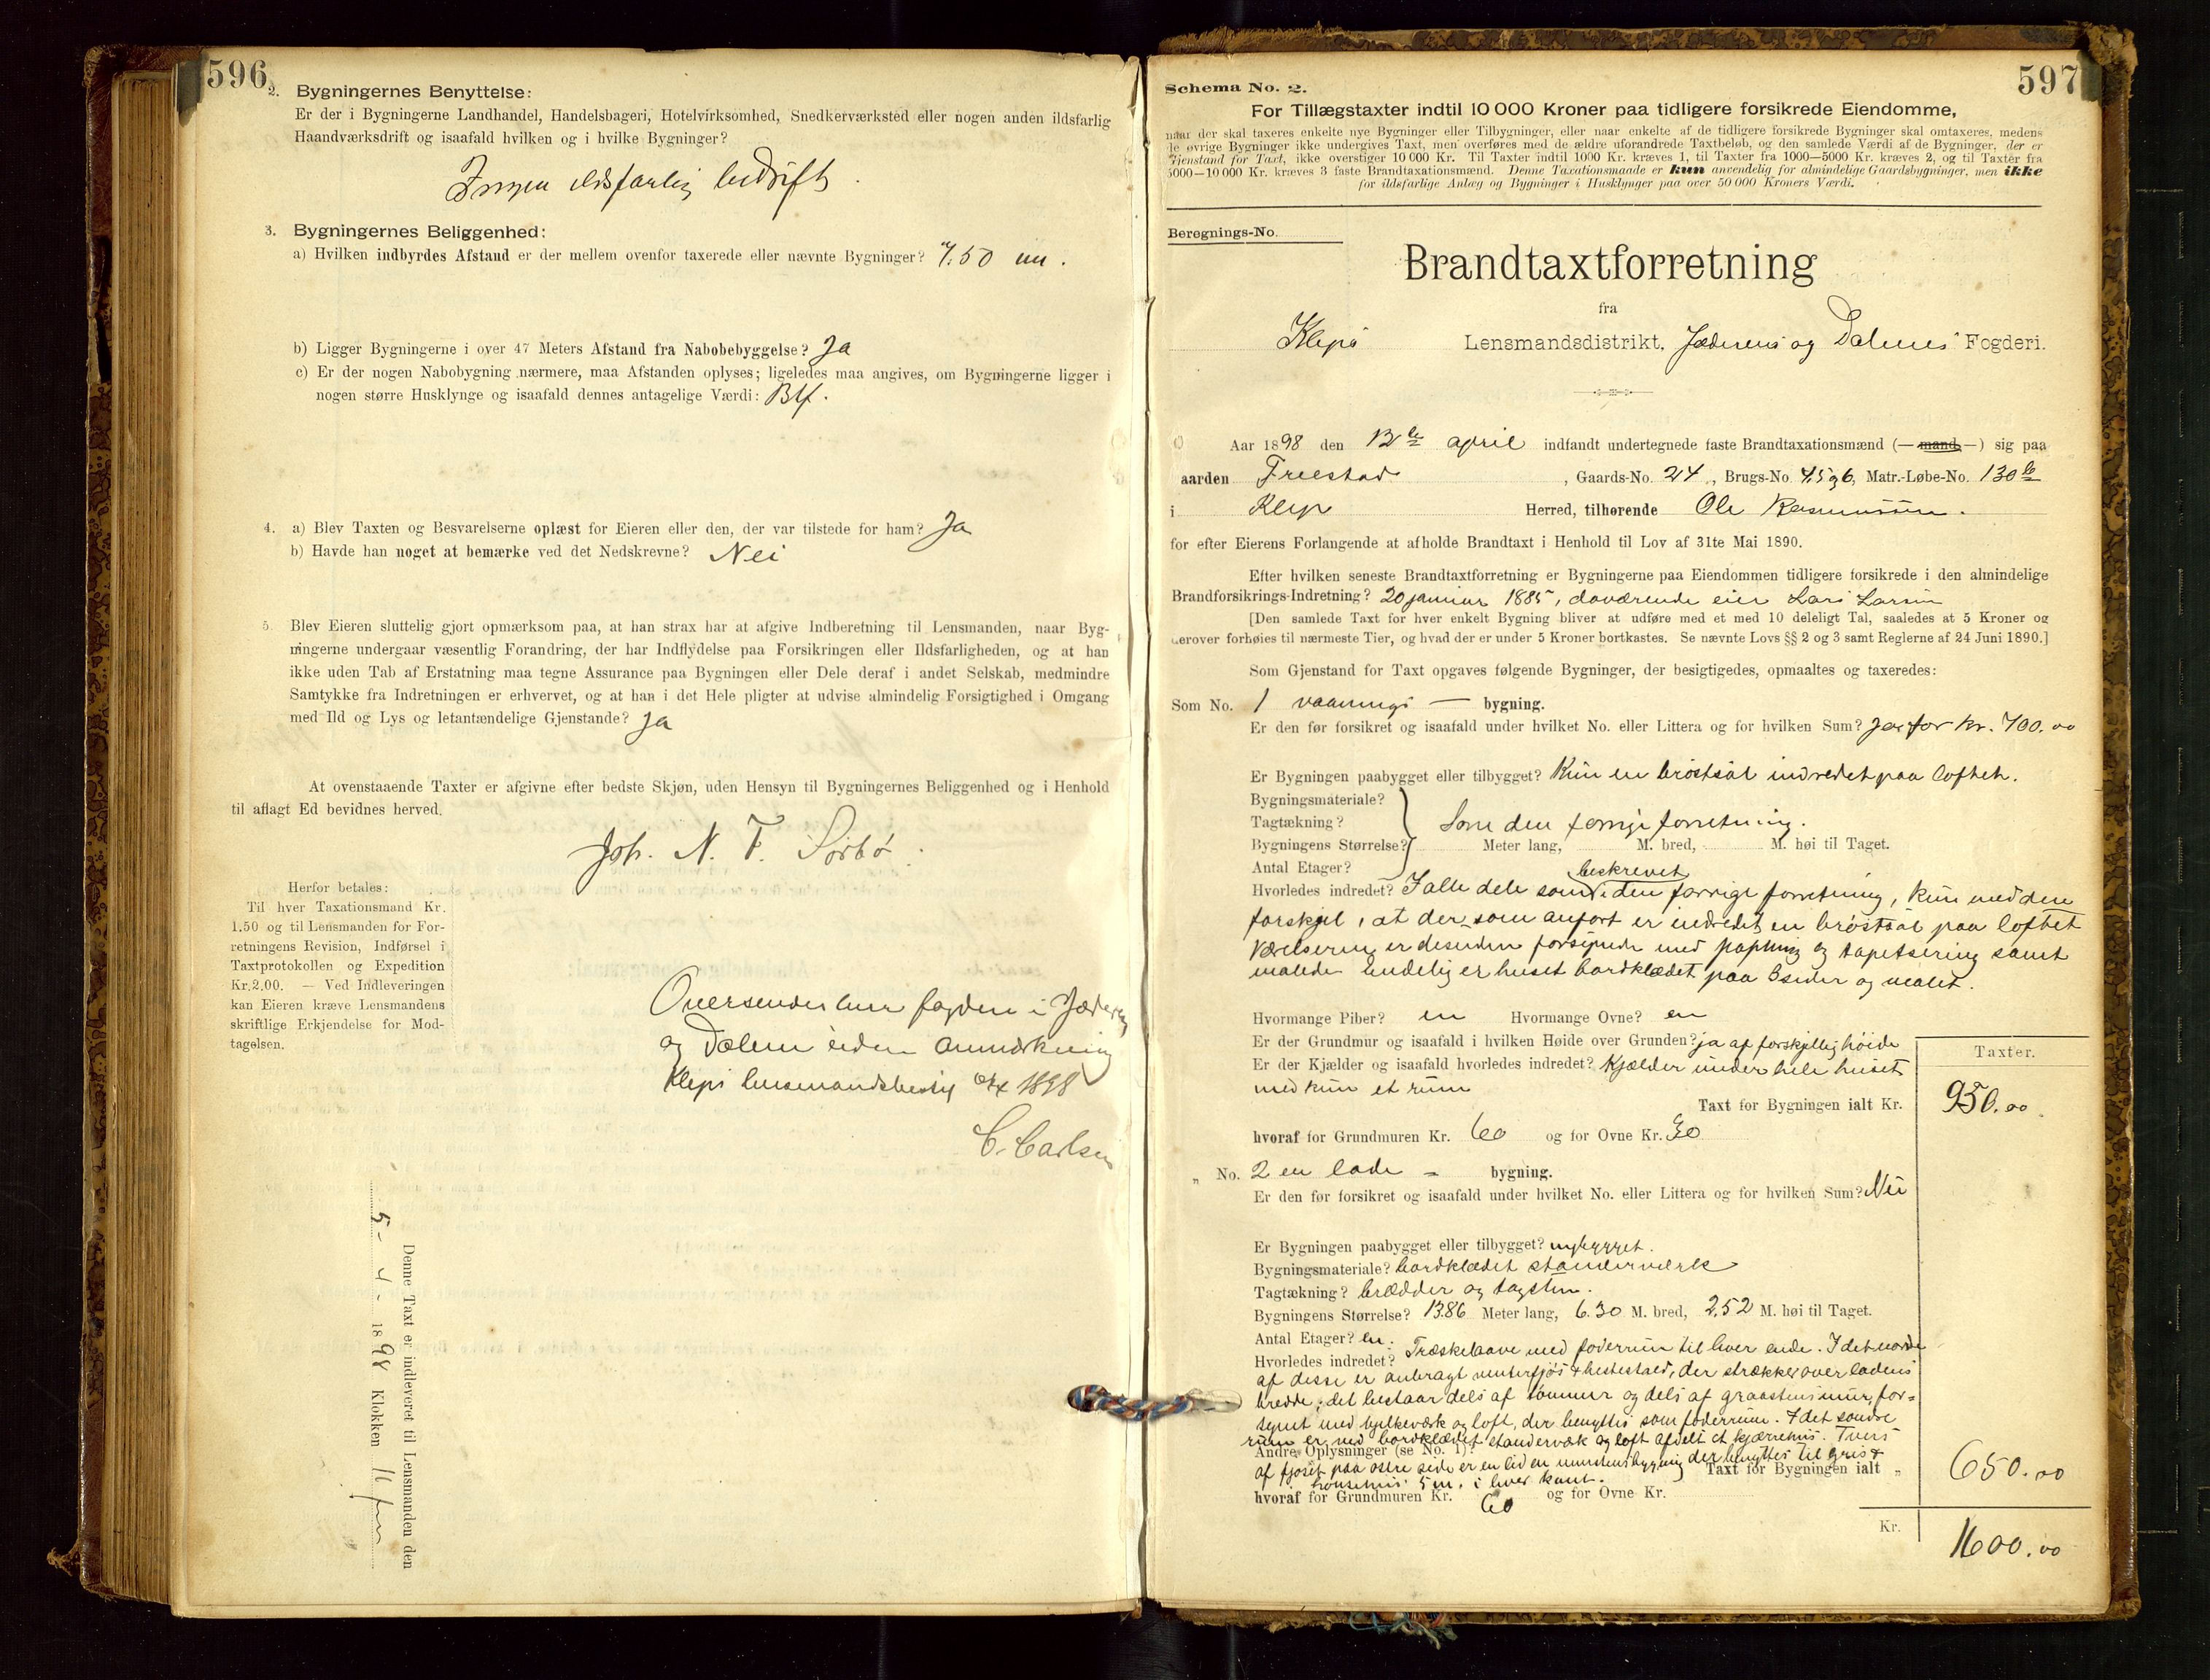 596
2. Bygningernes Benyttelse:
Er der i Bygningerne Landhandel, Handelsbageri, Hotelvirksomhed, Snedkerværksted eller nogen anden ildsfarlig
Haandværksdrift og isaafald hvilken og i hvilke Bygninger?
Ingen ildsfarlig bedrift.
3. Bygningernes Beliggenhed:
a) Hvilken indbyrdes Afstand er der mellem ovenfor taxerede eller nævnte Bygninger? 7.50 m.
b) Ligger Bygningerne i over 47 Meters Afstand fra Nabobebyggelse? Ja
c) Er der nogen Nabobygning nærmere, maa Afstanden oplyses; ligeledes maa angives, om Bygningerne ligger i
nogen større Husklynge og isaafald dennes antagelige Værdi: Blf.
4. a) Blev Taxten og Besvarelserne oplæst for Eieren eller den, der var tilstede for ham? Ja
b) Havde han noget at bemærke ved det Nedskrevne? Nei
5. Blev Eieren sluttelig gjort opmærksom paa, at han strax har at afgive Indberetning til Lensmanden, naar Byg-
ningerne undergaar væsentlig Forandring, der har Indflydelse paa Forsikringen eller Ildsfarligheden, og at han
ikke uden Tab af Erstatning maa tegne Assurance paa Bygningen eller Dele deraf i andet Selskab, medmindre
Samtykke fra Indretningen er erhvervet, og at han i det Hele pligter at udvise almindelig Forsigtighed i Omgang
med Ild og Lys og letantændelige Gjenstande? Ja
At ovenstaaende Taxter er afgivne efter bedste Skjøn, uden Hensyn til Bygningernes Beliggenhed og i Henhold
til aflagt Ed bevidnes herved.
Joh. N. T. Sörbö.
Herfor betales:
Til hver Taxationsmand Kr.
1.50 og til Lensmanden for For-
retningens Revision, Indførsel i
Taxtprotokollen og Expedition
Kr. 2.00. — Ved Indleveringen
kan Eieren kræve Lensmandens
skriftlige Erkjendelse for Mod-
tagelsen.
Oversendes herr fogden i Jæderen
og Dalerne uden anmærkning
Kleps lensmandsbestil 1898
C. Carlsen
Denne Taxt er indleveret til Lensmanden den
5 - 4 - 1898 Klokken 11 fm
597
Schema No. 2.
For Tillægstaxter indtil 10 000 Kroner paa tidligere forsikrede Eiendomme,
naar der skal taxeres enkelte nye Bygninger eller Tilbygninger, eller naar enkelte af de tidligere forsikrede Bygninger skal omtaxeres, medens
de øvrige Bygninger ikke undergives Taxt, men overføres med de ældre uforandrede Taxtbeløb, og den samlede Værdi af de Bygninger, der er
Gjenstand for Taxt, ikke overstiger 10 000 Kr. Til Taxter indtil 1000 Kr. kræves 1, til Taxter fra 1000—5000 Kr. kræves 2, og til Taxter fra
5000—10 000 Kr. kræves 3 faste Brandtaxationsmænd. Denne Taxationsmaade er kun anvendelig for almindelige Gaardsbygninger, men ikke
for ildsfarlige Anlæg og Bygninger i Husklynger paa over 50 000 Kroners Værdi.
Beregnings-No.
Brandtaxtforretning
fra
Kleps Lensmandsdistrikt, Jæderens og Dalernes Fogderi.
Aar 1898 den 13de april indfandt undertegnede faste Brandtaxationsmænd (— mand —) sig paa
aarden Friestad, Gaards-No. 24, Brugs-No. 4,5 og 6, Matr.-Løbe-No. 130b
i Klep Herred, tilhørende Ole Rasmussen.
for efter Eierens Forlangende at afholde Brandtaxt i Henhold til Lov af 31te Mai 1890.
Efter hvilken seneste Brandtaxtforretning er Bygningerne paa Eiendommen tidligere forsikrede i den almindelige
Brandforsikrings-Indretning? 20 januar 1885, daværende eier Lars Larsen
[Den samlede Taxt for hver enkelt Bygning bliver at udføre med et med 10 deleligt Tal, saaledes at 5 Kroner og
derover forhøies til nærmeste Tier, og hvad der er under 5 Kroner bortkastes. Se nævnte Lovs §§ 2 og 3 samt Reglerne af 24 Juni 1890.]
Som Gjenstand for Taxt opgaves følgende Bygninger, der besigtigedes, opmaaltes og taxeredes:
Som No. 1 vaanings — bygning.
Er den før forsikret og isaafald under hvilket No. eller Littera og for hvilken Sum? Ja for kr. 700.00
Er Bygningen paabygget eller tilbygget? Kun en bröstsal indredet paa loftet.
Bygningsmateriale?
Tagtækning? Som den forrige forretning.
Bygningens Størrelse? Meter lang, M. bred, M. høi til Taget.
Antal Etager?
beskrevet
Hvorledes indredet? I alle dele som i den forrige forretning, kun med den
forskjel, at der som anfört er indredet en bröstsal paa loftet
Værelserne er desuden forsynede med papning og tapetsering samt
malede endelig er huset bordklædet paa 3 sider og malet.
Hvormange Piber? en Hvormange Ovne? en
Er der Grundmur og isaafald i hvilken Høide over Grunden? ja af forskjellig höide
Er der Kjælder og isaafald hvorledes indredet? Kjælder under hele huset
med kun et rum
Taxter.
Taxt for Bygningen ialt Kr. 950.00
hvoraf for Grundmuren Kr. 60 og for Ovne Kr. 30
„ No. 2 en lade - bygning.
Er den før forsikret og isaafald under hvilket No. eller Littera og for hvilken Sum? Nei
Er Bygningen paabygget eller tilbygget? nybygget.
Bygningsmateriale? bordklædet standerværk
Tagtækning? brædder og tagsten.
Bygningens Størrelse? 13.86 Meter lang, 6.30 M. bred, 2.52 M. høi til Taget.
Antal Etager? en.
Hvorledes indredet? Træskelaave med foderrum til hver ende. I det nordre
af disse er anbragt vinterfjös & hestestald, der strækker over ladens
bredde; det bestaar dels af tömmer og dels af graastensmur, for=
synet med bjelkeværk og loft, der benyttes som foderrum. I det söndre
rum er ved bordklædet standerværk og loft afdelt et kjærrehus. Tvers
Andre Oplysninger (se No. 1)?
af fjöset paa östre side er en liden murstensbygning der benyttes til gris &
hönsehus 5 m. i hver kant.
Taxt for Bygningen ialt „ 650.00
hvoraf for Grundmuren Kr. 60 og for Ovne Kr.
Kr. 1600.00